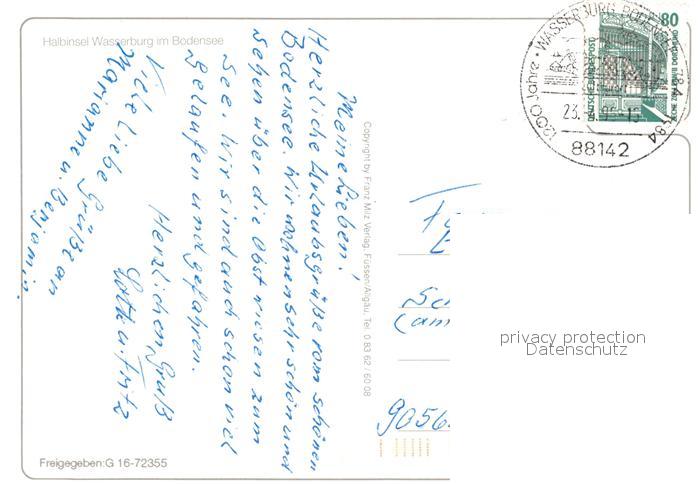 Halbinsel Wasserburg im Bodensee
Meine Lieben!
Herzliche Urlaubsgrüße vom schönen
Bodensee. Wir wohnen sehr schön und
sehen über die Obstwiesen zum
See. Wir sind auch schon viel
gelaufen und gefahren.
Herzlichen Gruß
Lotte u. Fritz
Viele liebe Grüße an
Marianne u. Benjamin.
Copyright by Franz Milz Verlag, Füssen/Allgäu, Tel. 0 83 62 / 60 08
80
DEUTSCHE BUNDESPOST
ZECHE ZOLLERN II DORTMUND
1200 Jahre • WASSERBURG BODENSEE 784
1984
23.
88142
9056
privacy protection
Datenschutz
Freigegeben: G 16-72355